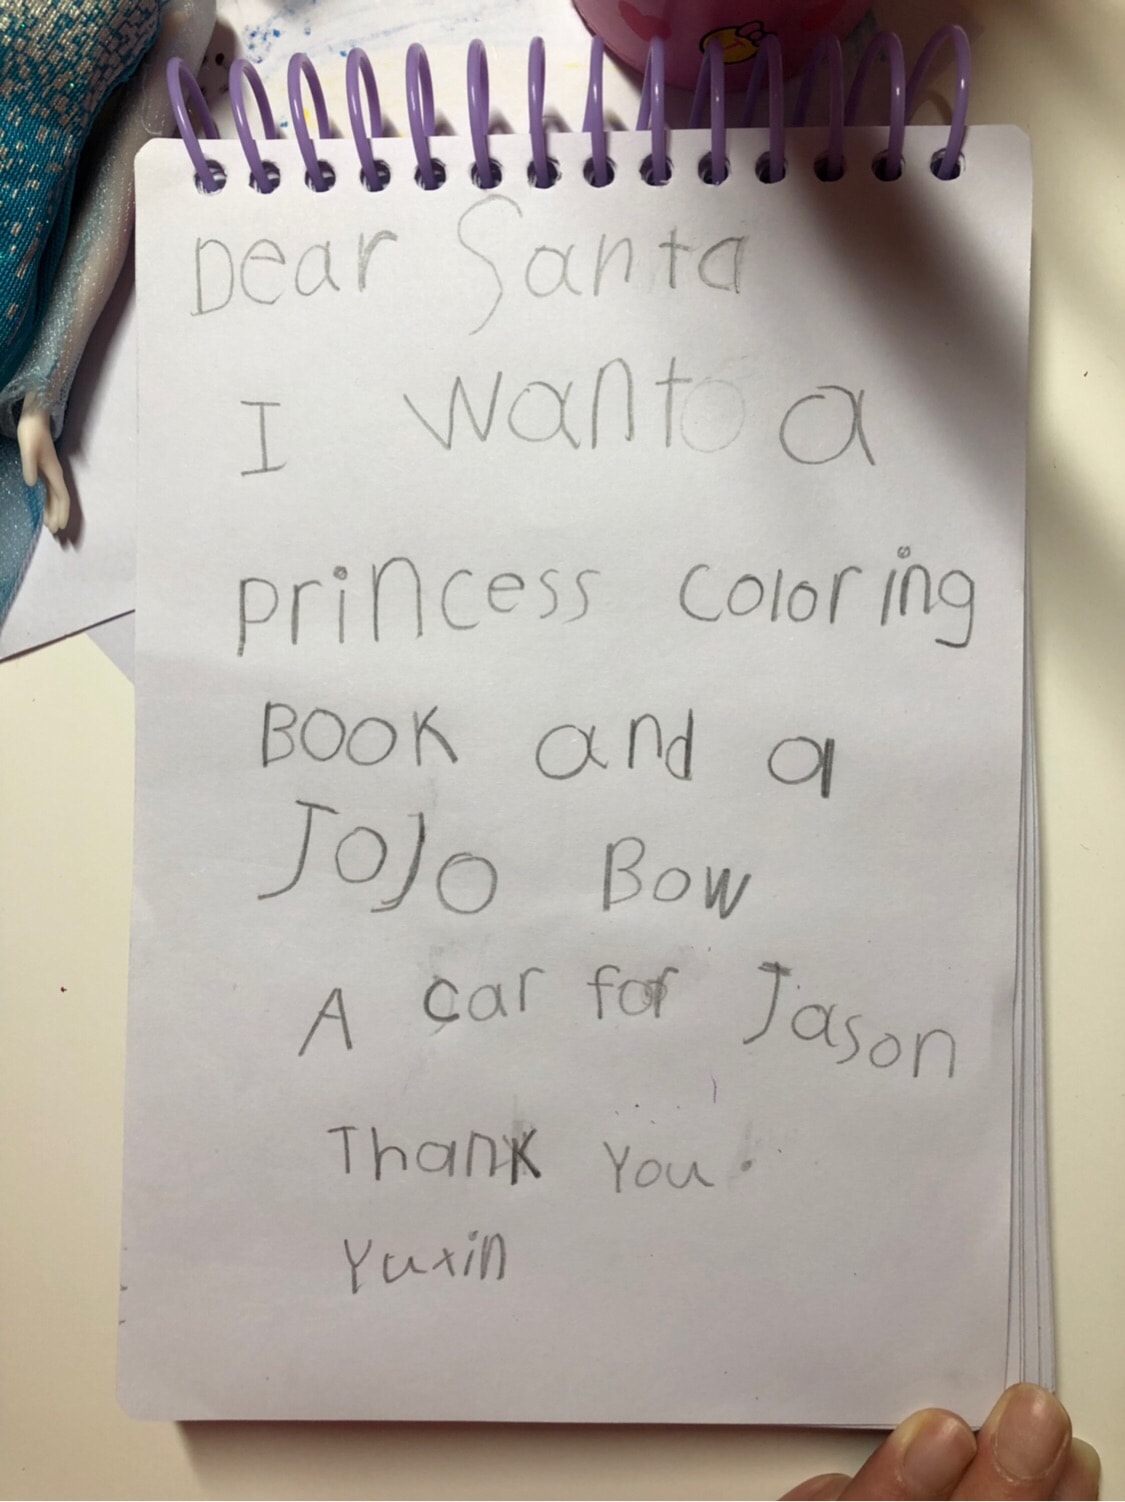 Dear Santa
I want a
princess coloring
BOOK and a
JoJo Bow
A car for Jason
Thank You.
Yuxin